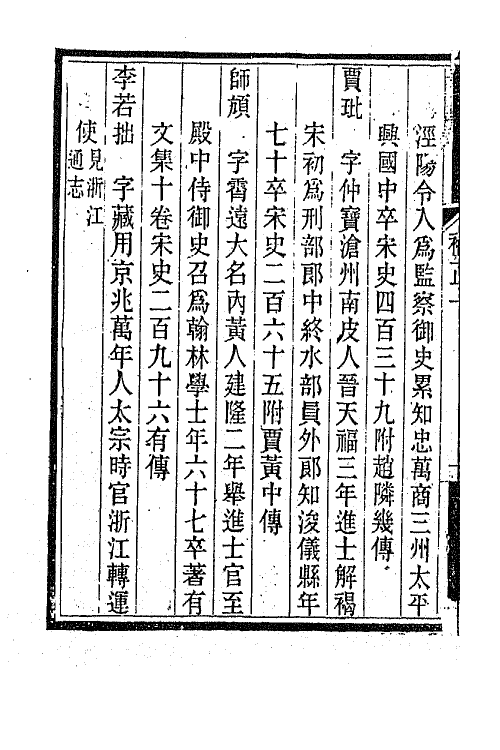 涇陽令入為監察御史累知忠萬商三州太平
興國中卒宋史四百三十九附趙隣幾傳
賈玭　字仲寶滄州南皮人晉天福三年進士解褐
宋初爲刑部郎中終水部員外郎知浚儀縣年
七十卒宋史二百六十五附賈黃中傳
師頏　字霄遠大名內黃人建隆二年舉進士官至
殿中侍御史召爲翰林學士年六十七卒著有
文集十卷宋史二百九十六有傳
李若拙　字藏用京兆萬年人太宗時官浙江轉運
使見浙江
通志